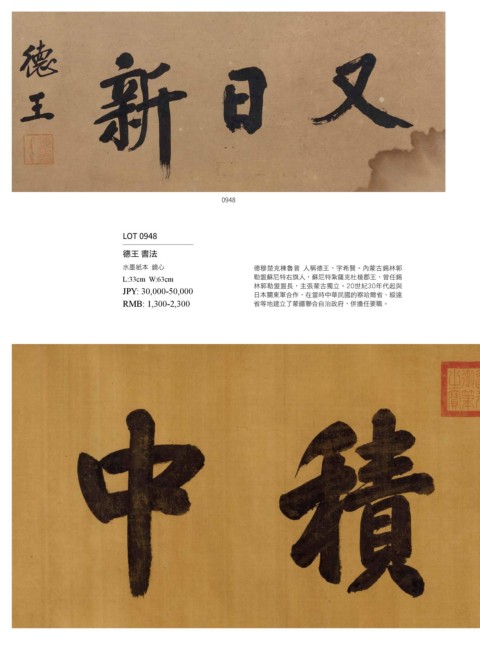 又日新
德王
0948
LOT 0948
德王 書法
水墨紙本 鏡心
L:33cm W:63cm
JPY: 30,000-50,000
RMB: 1,300-2,300
德穆楚克棟魯普 人稱德王，字希賢。內蒙古錫林郭
勒盟蘇尼特右旗人，蘇尼特紮薩克杜棱郡王，曾任錫
林郭勒盟盟長，主張蒙古獨立。20世紀30年代起與
日本關東軍合作，在當時中華民國的察哈爾省、綏遠
省等地建立了蒙疆聯合自治政府，併擔任要職。
積中